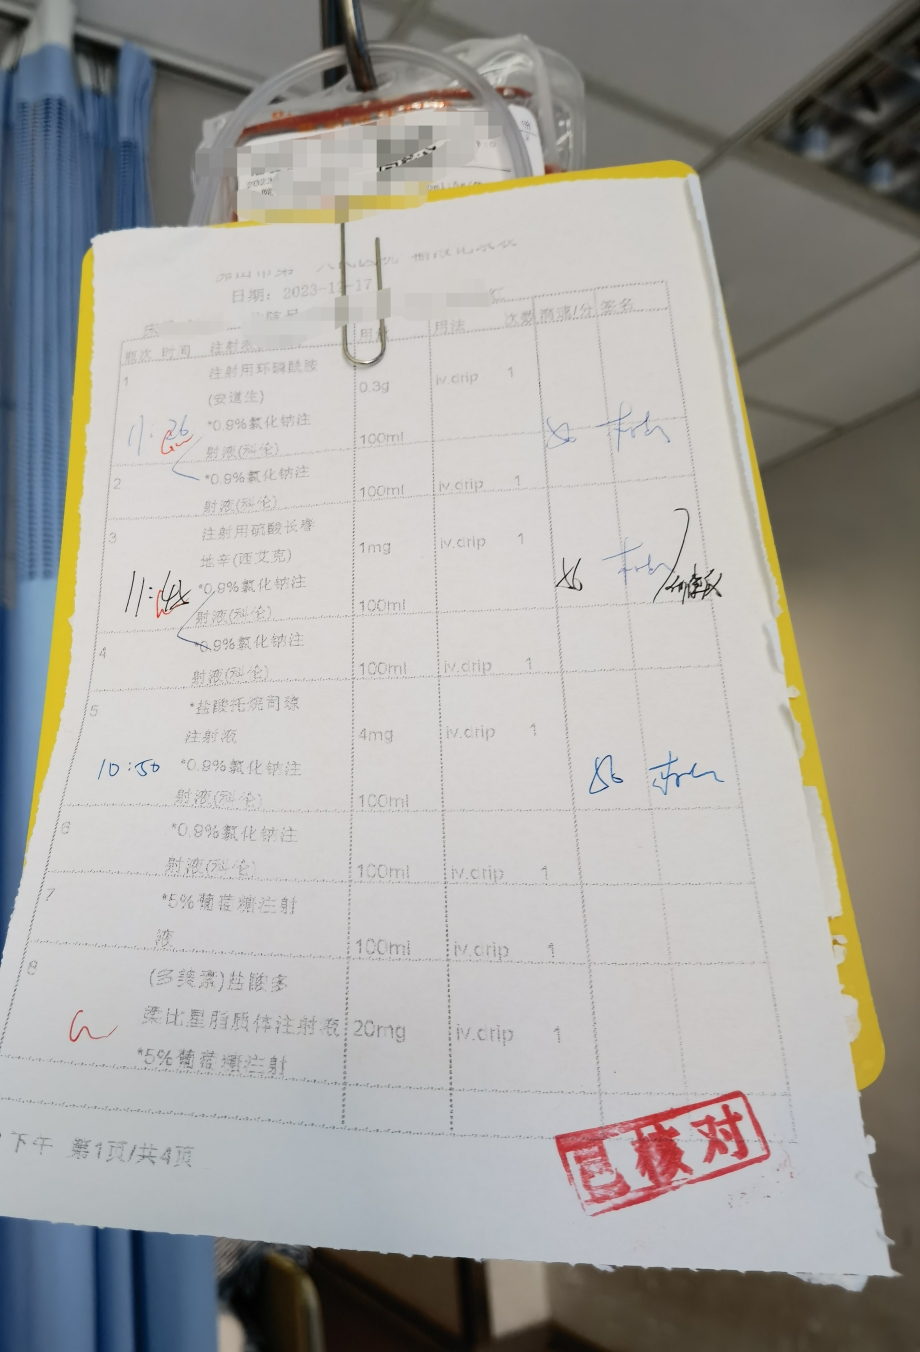 日期: 2023-12-17
频次 时间 用法 次数 滴速/分 签名
1 注射用环磷酰胺
(安道生) 0.3g iv.drip 1
11:26 *0.9%氯化钠注
射液(科伦) 100ml
2 *0.9%氯化钠注
射液(科伦) 100ml iv.drip 1
3 注射用硫酸长春
地辛(西艾克) 1mg iv.drip 1
*0.9%氯化钠注
射液(科伦) 100ml
4 *0.9%氯化钠注
射液(科伦) 100ml iv.drip 1
5 *盐酸托烷司琼
注射液 4mg iv.drip 1
10:50 *0.9%氯化钠注
射液(科伦) 100ml
6 *0.9%氯化钠注
射液(科伦) 100ml iv.drip 1
7 *5%葡萄糖注射
液 100ml iv.drip 1
8 (多美素)盐酸多
柔比星脂质体注射液 20mg iv.drip 1
*5%葡萄糖注射
下午 第1页/共4页
已核对